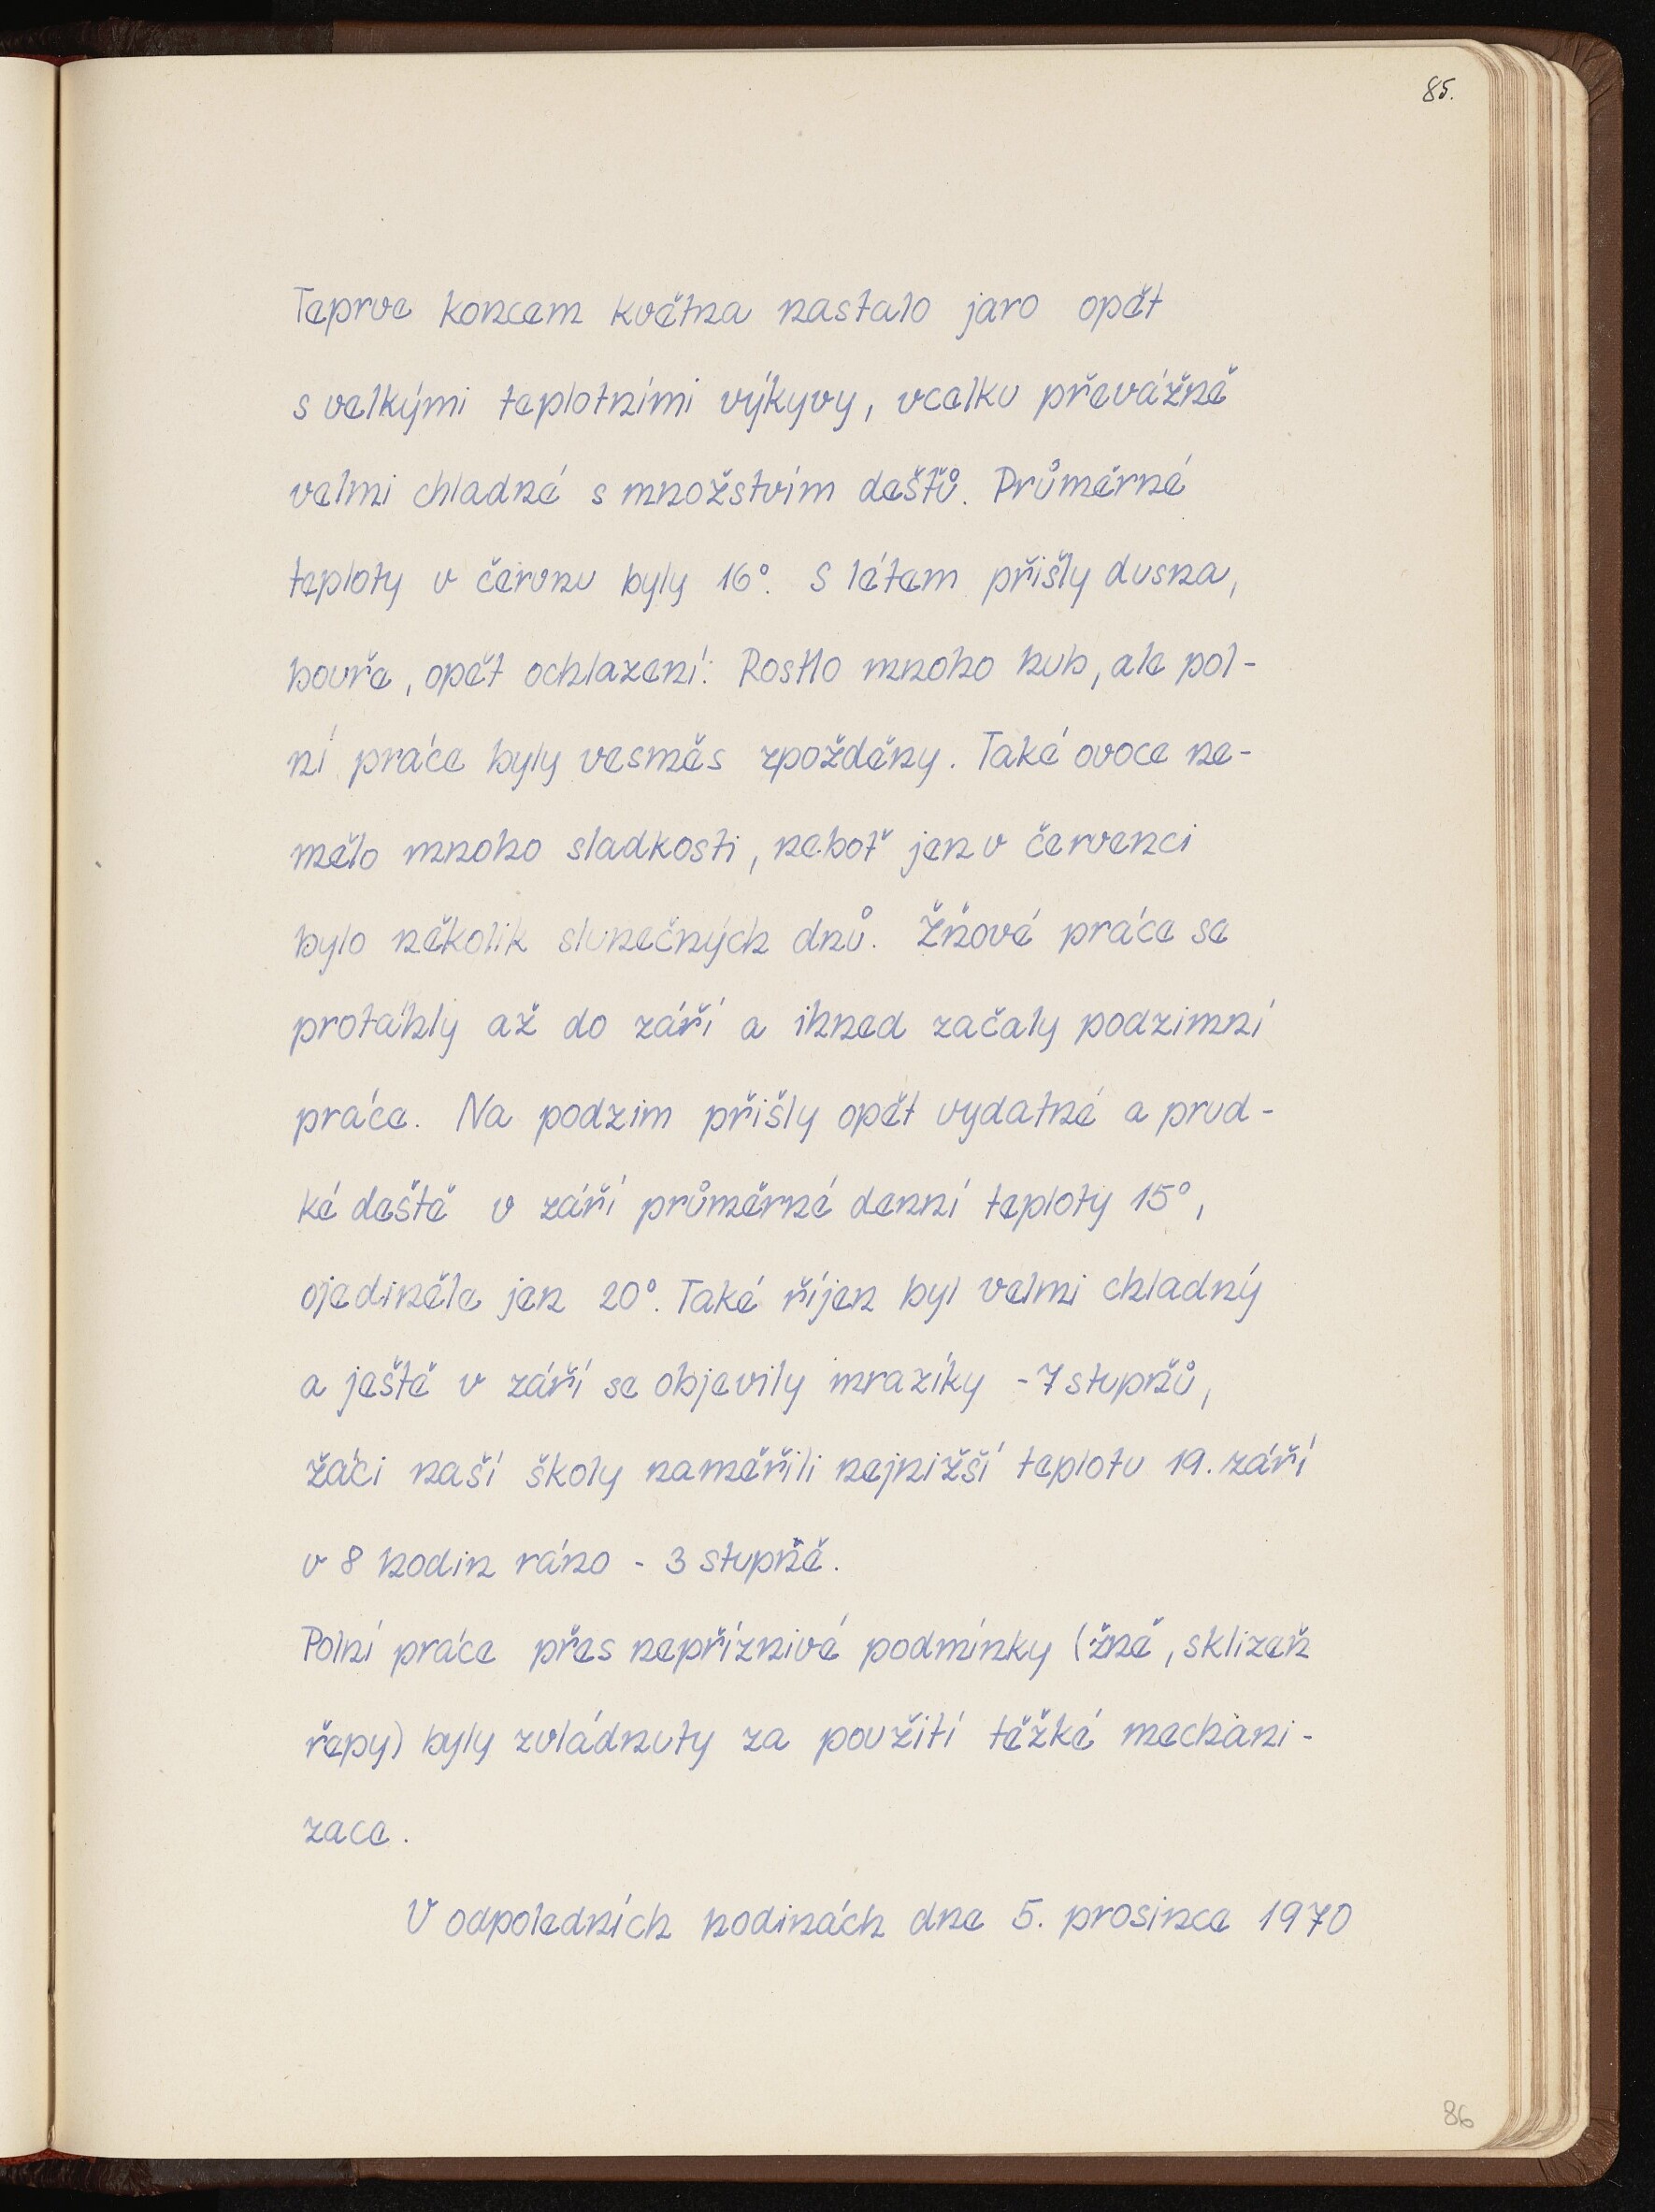 85.
Teprve koncem května nastalo jaro opět
s velkými teplotními výkyvy, vcelku převážně
velmi chladné s množstvím dešťů. Průměrné
teploty v červnu byly 16°. S létem přišly dusna,
bouře, opět ochlazení. Rostlo mnoho hub, ale pol-
ní práce byly vesměs zpožděny. Také ovoce ne-
mělo mnoho sladkosti, neboť jen v červenci
bylo několik slunečných dnů. Žňové práce se
protáhly až do září a ihned začaly podzimní
práce. Na podzim přišly opět vydatné a prud-
ké deště v září průměrné denní teploty 15°,
ojediněle jen 20°. Také říjen byl velmi chladný
a ještě v září se objevily mrazíky -7 stupňů,
žáci naší školy naměřili nejnižší teplotu 19. září
v 8 hodin ráno - 3 stupně.
Polní práce přes nepříznivé podmínky (žně, sklizeň
řepy) byly zvládnuty za použití těžké mechani-
zace.
V odpoledních hodinách dne 5. prosince 1970
86